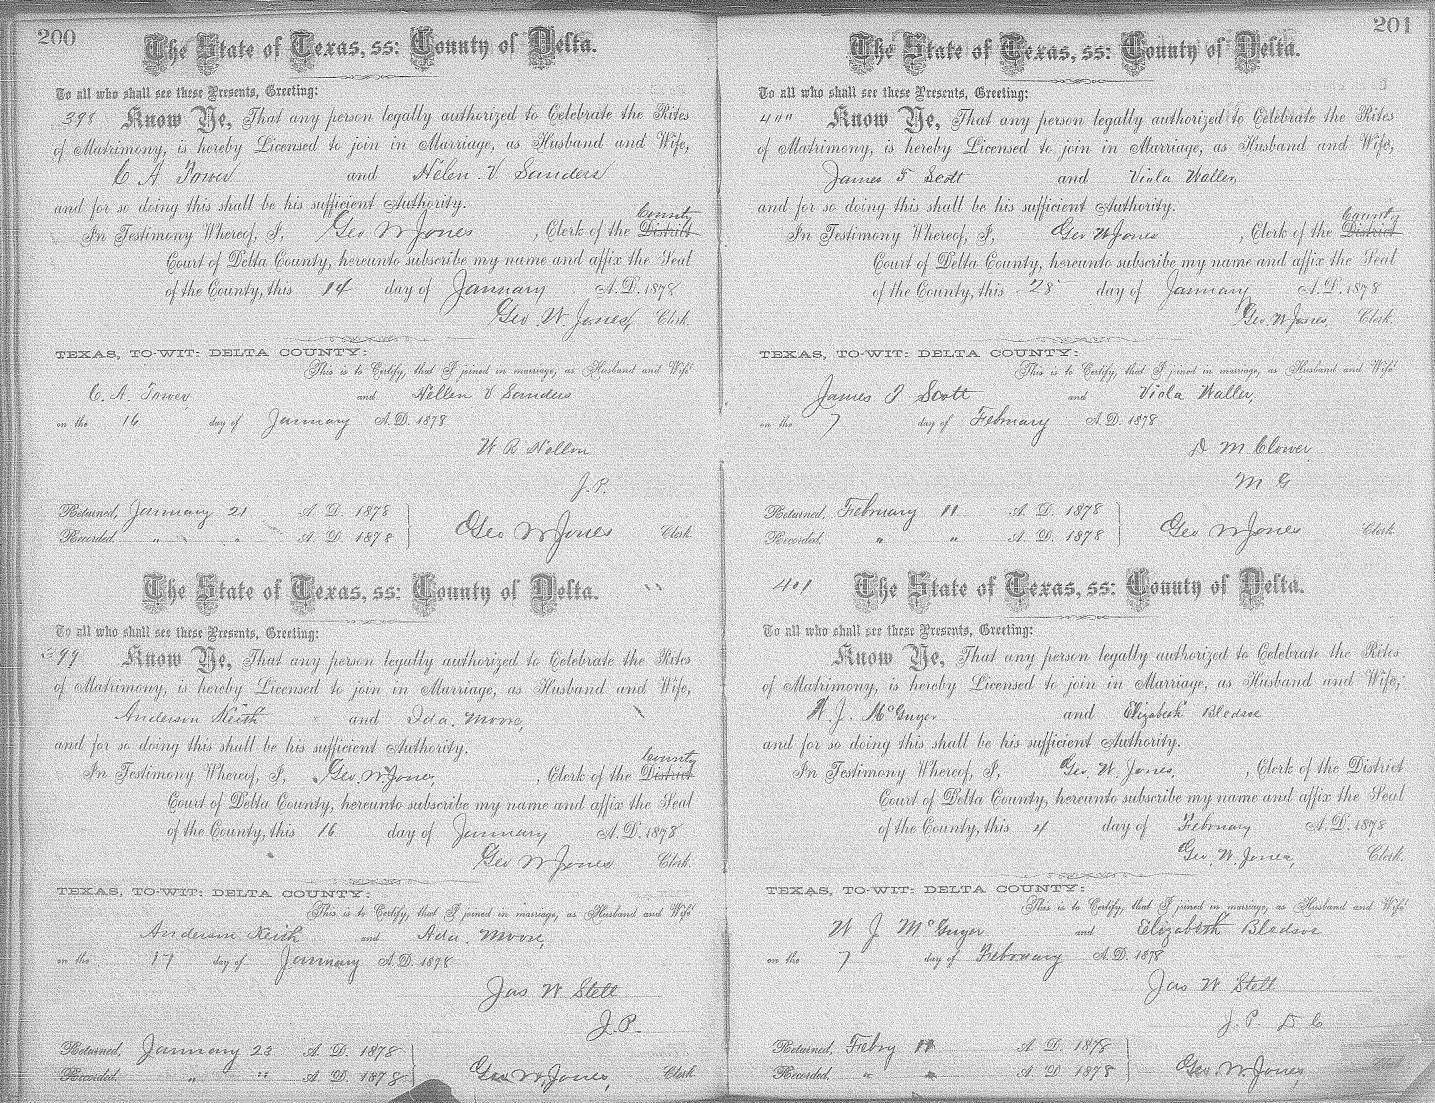 200
The State of Texas, ss: County of Delta.
To all who shall see these Presents, Greeting:
398 Know Ye, That any person legally authorized to Celebrate the Rites
of Matrimony, is hereby Licensed to join in Marriage, as Husband and Wife,
C A Tower and Helen V Sanders
and for so doing this shall be his sufficient Authority.
In Testimony Whereof, I, Geo W Jones, Clerk of the District County
Court of Delta County, hereunto subscribe my name and affix the Seal
of the County, this 14 day of January A.D. 1878
Geo. W. Jones, Clerk.
TEXAS, TO-WIT: DELTA COUNTY:
This is to Certify, that I joined in marriage, as Husband and Wife
C. A. Tower, and Hellen V Sanders
on the 16 day of January A.D. 1878
J.P.
Returned, January 21 A. D. 1878
Recorded, " " A. D. 1878
Geo W Jones Clerk
The State of Texas, ss: County of Delta.
To all who shall see these Presents, Greeting:
399 Know Ye, That any person legally authorized to Celebrate the Rites
of Matrimony, is hereby Licensed to join in Marriage, as Husband and Wife,
Anderson Keith and Ida. Moore,
and for so doing this shall be his sufficient Authority.
In Testimony Whereof, I, Geo. W. Jones, Clerk of the District County
Court of Delta County, hereunto subscribe my name and affix the Seal
of the County, this 16 day of January A.D. 1878
Geo W Jones Clerk.
TEXAS, TO-WIT: DELTA COUNTY:
This is to Certify, that I joined in marriage, as Husband and Wife
Anderson Keith and Ada. Moore,
on the 17 day of January A.D. 1878
Jas W Stell
J.P.
Returned, January 23 A. D. 1878
Recorded, " " A. D. 1878
Geo W. Jones, Clerk
201
The State of Texas, ss: County of Delta.
To all who shall see these Presents, Greeting:
400 Know Ye, That any person legally authorized to Celebrate the Rites
of Matrimony, is hereby Licensed to join in Marriage, as Husband and Wife,
James F Scott and Viola Waller,
and for so doing this shall be his sufficient Authority.
In Testimony Whereof, I, Geo W Jones, Clerk of the District County
Court of Delta County, hereunto subscribe my name and affix the Seal
of the County, this 28 day of January A.D. 1878
Geo. W Jones Clerk.
TEXAS, TO-WIT: DELTA COUNTY:
This is to Certify, that I joined in marriage, as Husband and Wife
James F Scott and Viola Waller,
on the 7 day of February A.D. 1878
D M Clower
M G
Returned, February 11 A. D. 1878
Recorded, " " A. D. 1878
Geo W Jones Clerk
401 The State of Texas, ss: County of Delta.
To all who shall see these Presents, Greeting:
Know Ye, That any person legally authorized to Celebrate the Rites
of Matrimony, is hereby Licensed to join in Marriage, as Husband and Wife,
W. J. McGuyer and Elizabeth Bledsoe
and for so doing this shall be his sufficient Authority.
In Testimony Whereof, I, Geo. W. Jones, Clerk of the District
Court of Delta County, hereunto subscribe my name and affix the Seal
of the County, this 4 day of February A.D. 1878
Geo. W. Jones, Clerk.
TEXAS, TO-WIT: DELTA COUNTY:
This is to Certify, that I joined in marriage, as Husband and Wife
W J McGuyer and Elizabeth Bledsoe
on the 7 day of February A.D. 1878
Jas W Stell
J. P. D C
Returned, Febry 11 A. D. 1878
Recorded, " " A. D. 1878
Geo W. Jones, Clerk